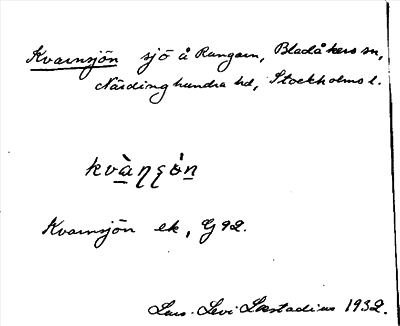 Kvarnsjön sjö å Rangarn, Bladåkers sn,
Närdinghundra hd, Stockholms l.
kvàṉʂòṉ
Kvarnsjön ek, G 92.
Lars-Levi Læstadius 1932.